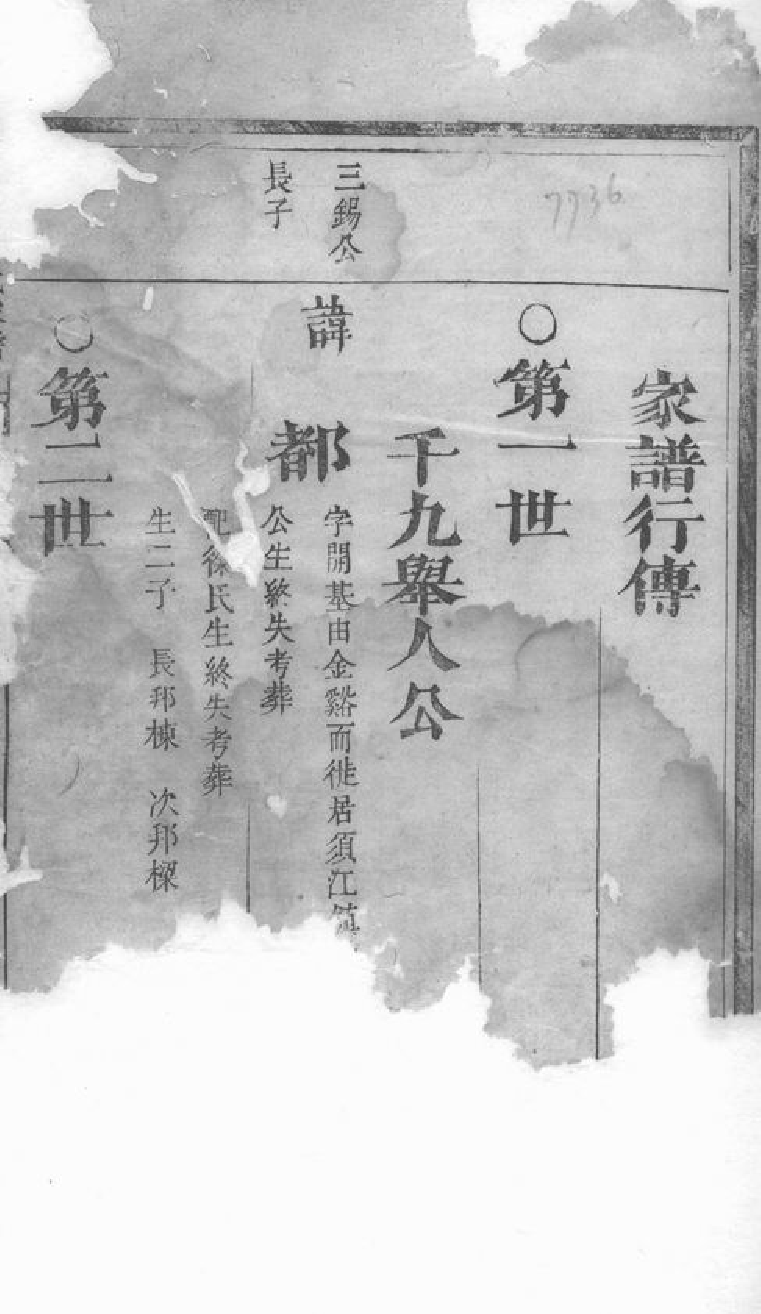 7736
家譜行傳
○第一世
千九舉人公
三錫公
長子
諱
都
字開基由金谿而徙居須江
公生終失考葬
配徐氏生終失考葬
生二子　長邦棟　次邦樑
○第二世